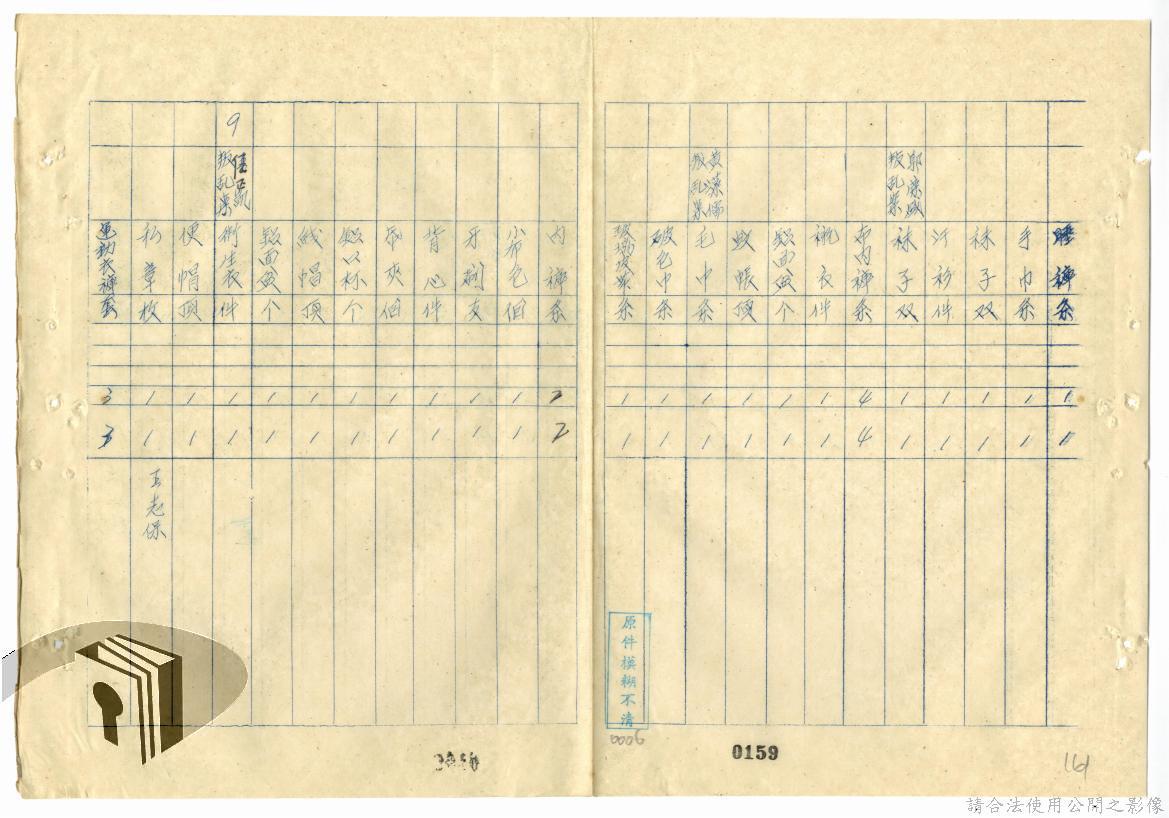 睡褲 条 1 1
手巾 条 1 1
袜子 双 1 1
汗衫 件 1 1
叛乱案 郭
袜子 双 1 1
布内褲 条 4 4
衬衣 件 1 1
面盆 个 1 1
蚊帳 頂 1 1
叛乱案 黄
毛巾 条 1 1
破毛巾 条 1 1
条 1 1
内褲 条 2 2
小布包 個 1 1
牙刷 支 1 1
背心 件 1 1
夾 個 1 1
口杯 个 1 1
絨帽 頂 1 1
面盆 个 1 1
9
叛乱案
衛生衣 件 1 1
便帽 頂 1 1
私章 枚 1 1 王老保
運動衣褲 套 3 3
原件模糊不清
0006
0159
161
請合法使用公開之影像